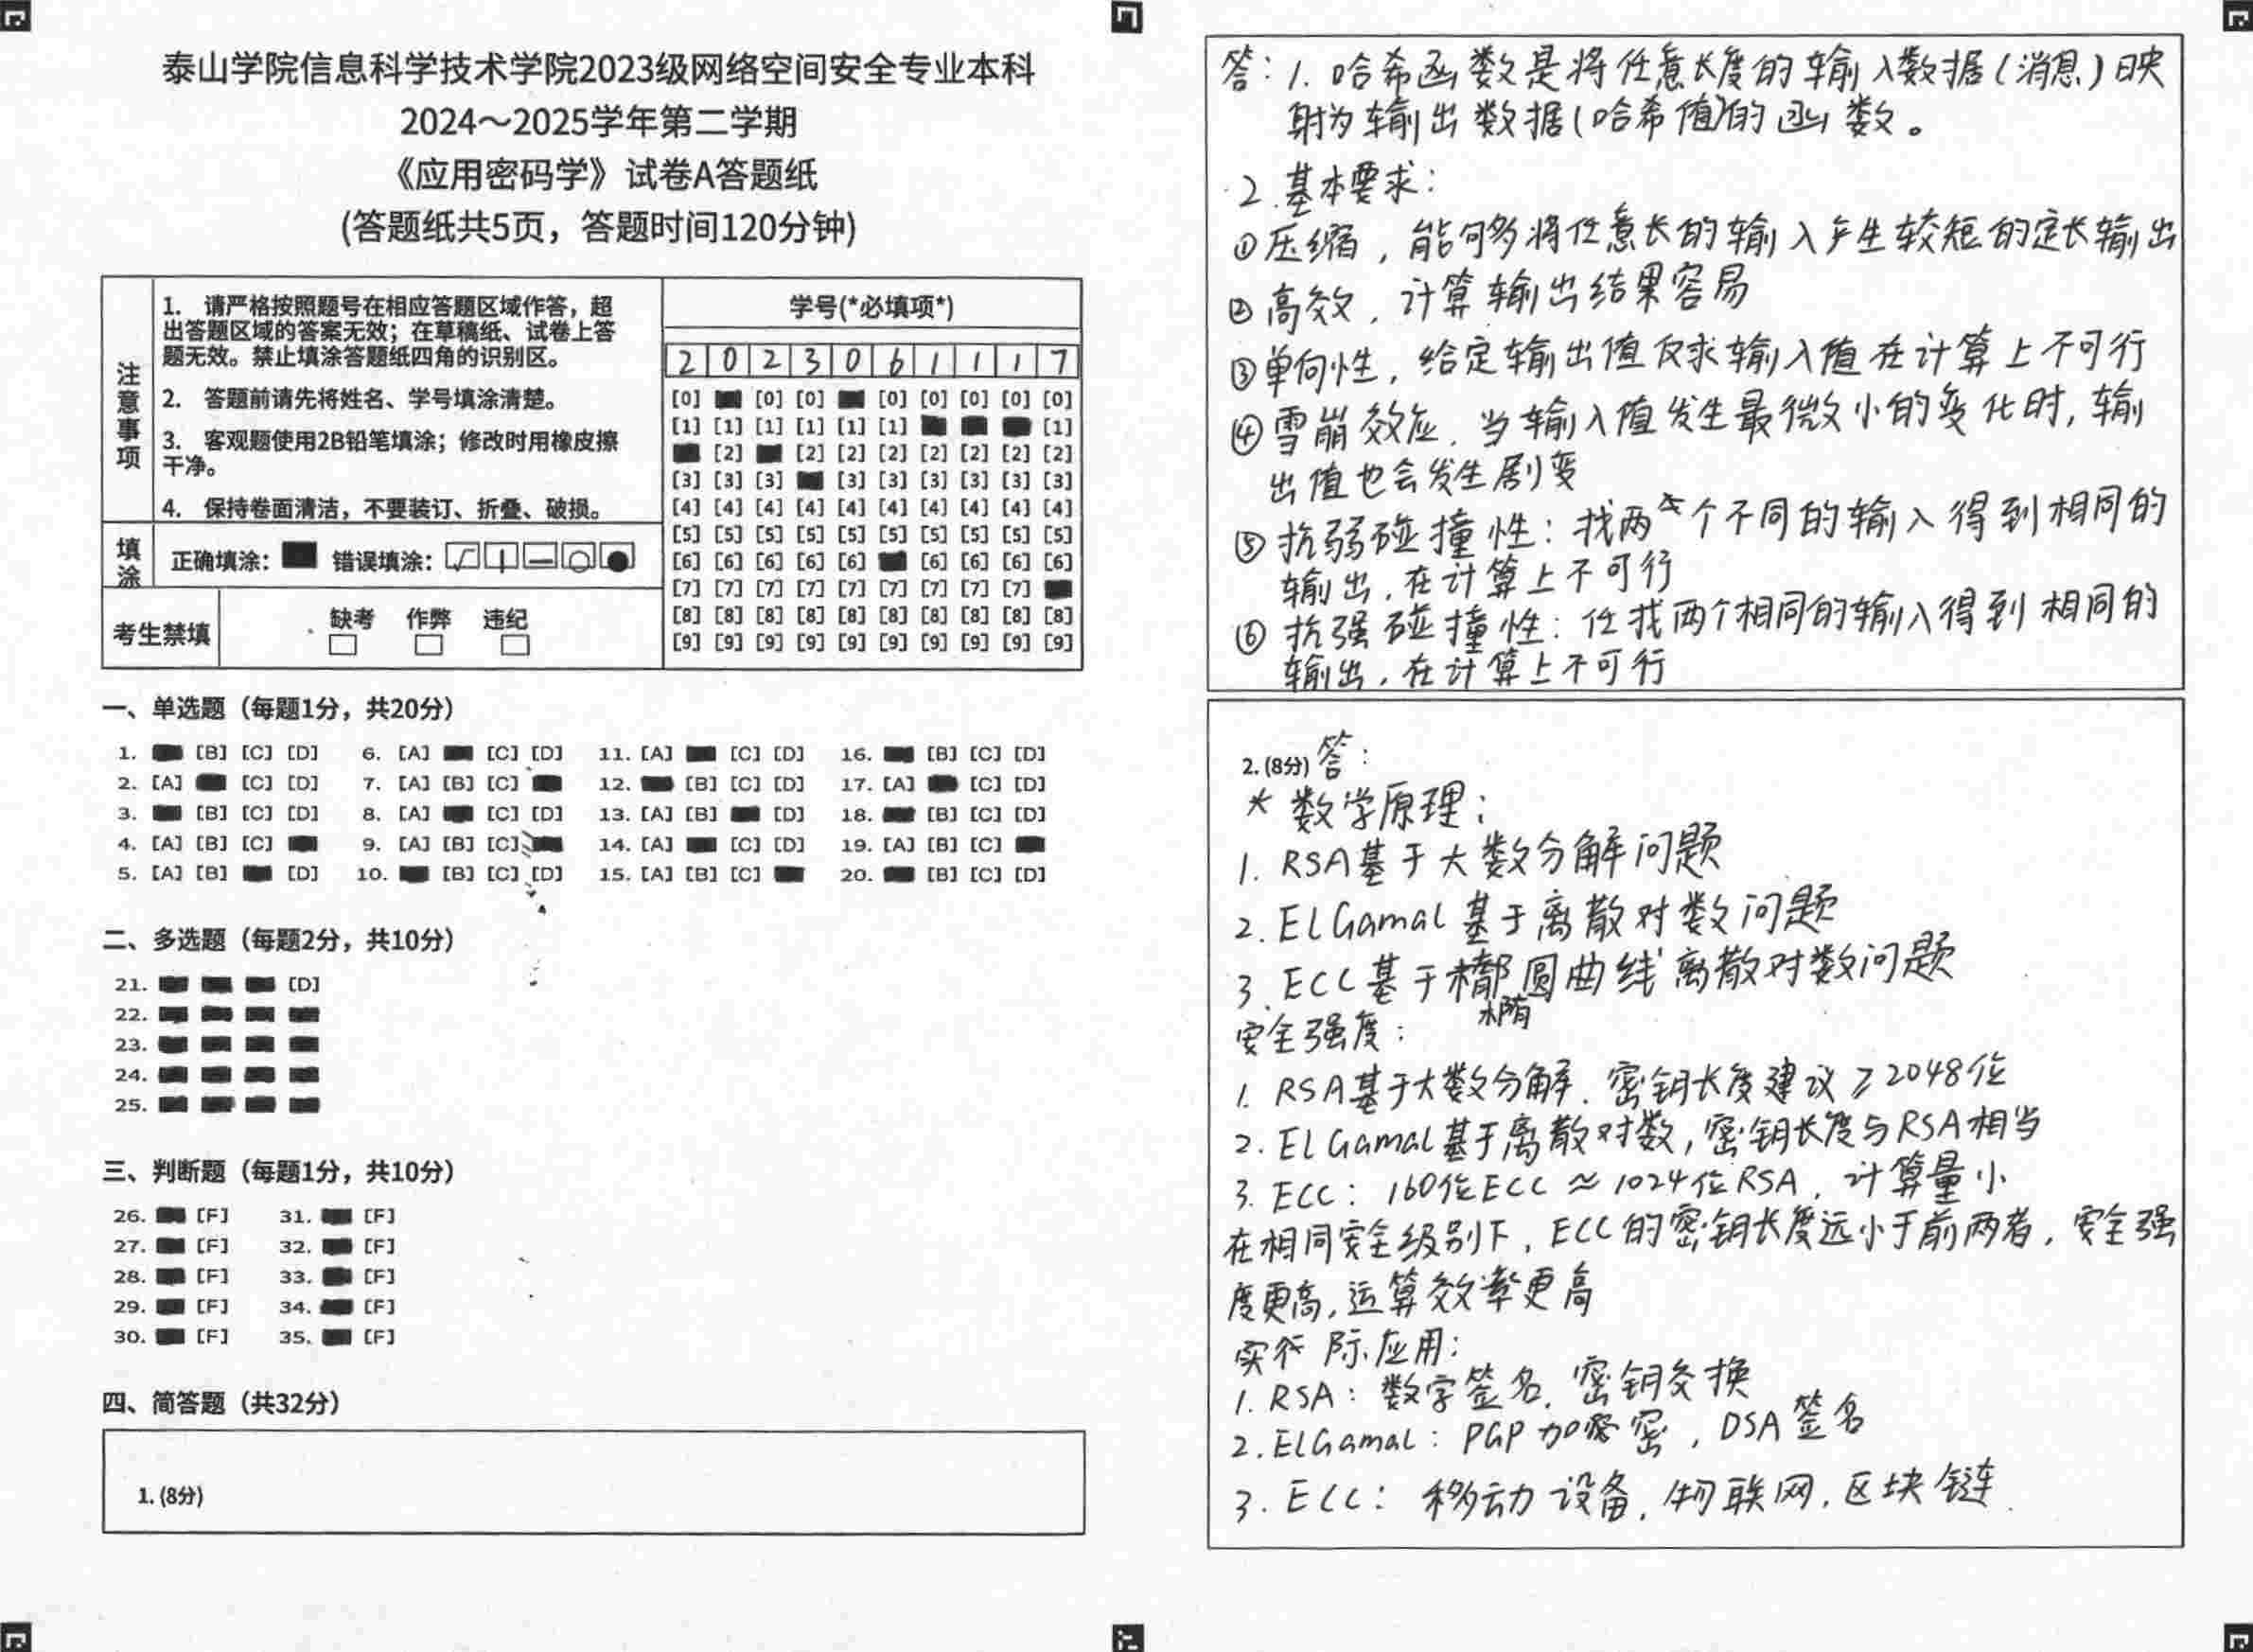 泰山学院信息科学技术学院2023级网络空间安全专业本科
2024～2025学年第二学期
《应用密码学》试卷A答题纸
(答题纸共5页，答题时间120分钟)
注意事项
1. 请严格按照题号在相应答题区域作答，超
出答题区域的答案无效；在草稿纸、试卷上答
题无效。禁止填涂答题纸四角的识别区。
2. 答题前请先将姓名、学号填涂清楚。
3. 客观题使用2B铅笔填涂；修改时用橡皮擦
干净。
4. 保持卷面清洁，不要装订、折叠、破损。
填涂
正确填涂： 错误填涂：
考生禁填
缺考 作弊 违纪
学号(*必填项*)
2 0 2 3 0 6 1 1 1 7
[0] [0] [0] [0] [0] [0] [0] [0]
[1] [1] [1] [1] [1] [1] [1]
[2] [2] [2] [2] [2] [2] [2] [2]
[3] [3] [3] [3] [3] [3] [3] [3] [3]
[4] [4] [4] [4] [4] [4] [4] [4] [4] [4]
[5] [5] [5] [5] [5] [5] [5] [5] [5] [5]
[6] [6] [6] [6] [6] [6] [6] [6] [6]
[7] [7] [7] [7] [7] [7] [7] [7] [7]
[8] [8] [8] [8] [8] [8] [8] [8] [8] [8]
[9] [9] [9] [9] [9] [9] [9] [9] [9] [9]
一、单选题（每题1分，共20分）
1. [B] [C] [D] 6. [A] [C] [D] 11. [A] [C] [D] 16. [B] [C] [D]
2. [A] [C] [D] 7. [A] [B] [C] 12. [B] [C] [D] 17. [A] [C] [D]
3. [B] [C] [D] 8. [A] [C] [D] 13. [A] [B] [D] 18. [B] [C] [D]
4. [A] [B] [C] 9. [A] [B] [C] 14. [A] [C] [D] 19. [A] [B] [C]
5. [A] [B] [D] 10. [B] [C] [D] 15. [A] [B] [C] 20. [B] [C] [D]
二、多选题（每题2分，共10分）
21. [D]
22.
23.
24.
25.
三、判断题（每题1分，共10分）
26. [F] 31. [F]
27. [F] 32. [F]
28. [F] 33. [F]
29. [F] 34. [F]
30. [F] 35. [F]
四、简答题（共32分）
1. (8分)
答：1. 哈希函数是将任意长度的输入数据(消息)映
射为输出数据(哈希值)的函数。
2. 基本要求：
①压缩，能够将任意长的输入产生较短的定长输出
②高效，计算输出结果容易
③单向性，给定输出值反求输入值在计算上不可行
④雪崩效应，当输入值发生最微小的变化时，输
出值也会发生剧变
⑤抗弱碰撞性：找两个不同的输入得到相同的
输出，在计算上不可行
⑥抗强碰撞性：任找两个相同的输入得到相同的
输出，在计算上不可行
2. (8分) 答：
* 数学原理：
1. RSA基于大数分解问题
2. ElGamal基于离散对数问题
3. ECC基于椭圆曲线离散对数问题
安全强度：
1. RSA基于大数分解，密钥长度建议≥2048位
2. ElGamal基于离散对数，密钥长度与RSA相当
3. ECC：160位ECC≈1024位RSA，计算量小
在相同安全级别下，ECC的密钥长度远小于前两者，安全强
度更高，运算效率更高
实际应用：
1. RSA：数字签名，密钥交换
2. ElGamal：PGP加密，DSA签名
3. ECC：移动设备，物联网，区块链.